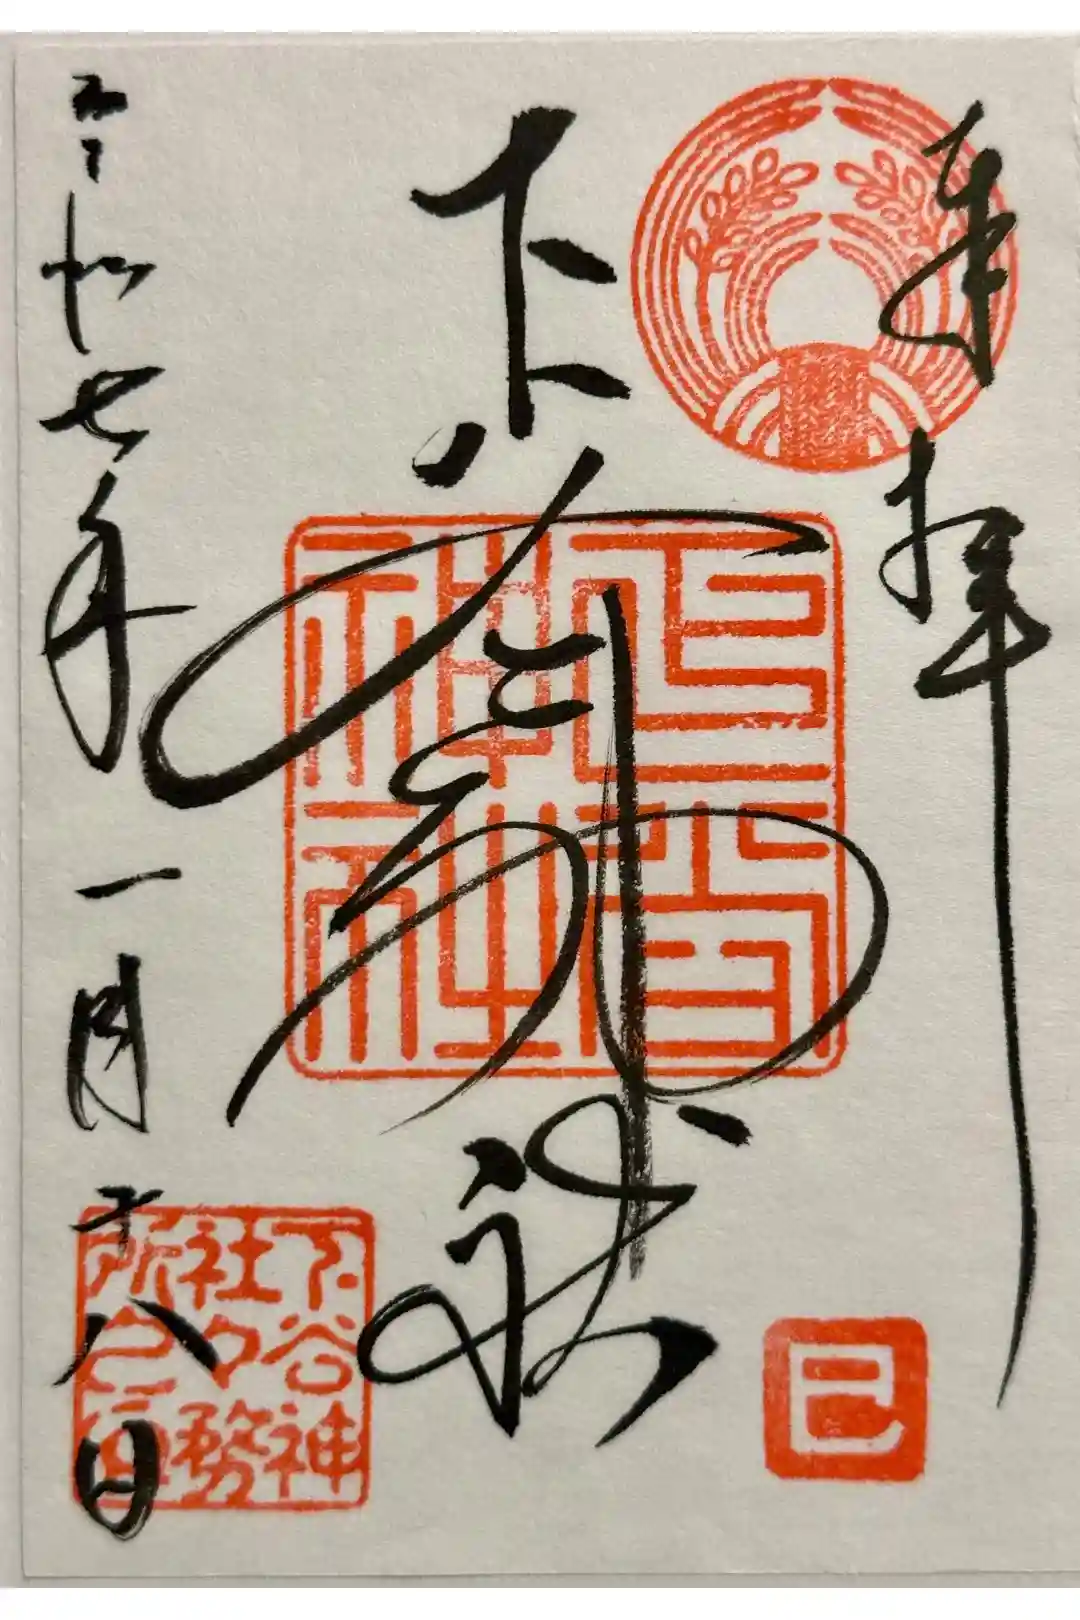 奉拝
下谷神社
下谷神社
巳
令和七年一月十八日
下谷神
社々務
所之印